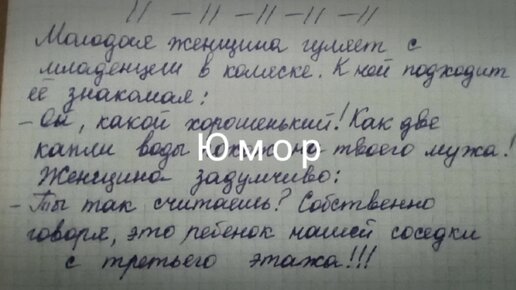 11 - 11 - 11 - 11 - 11
Молодая женщина гуляет с
младенцем в коляске. К ней подходит
её знакомая:
- Ой, какой хорошенький! Как две
капли воды похож на твоего мужа!
Юмор
Женщина задумчиво:
- Ты так считаешь? Собственно
говоря, это ребенок нашей соседки
с третьего этажа!!!